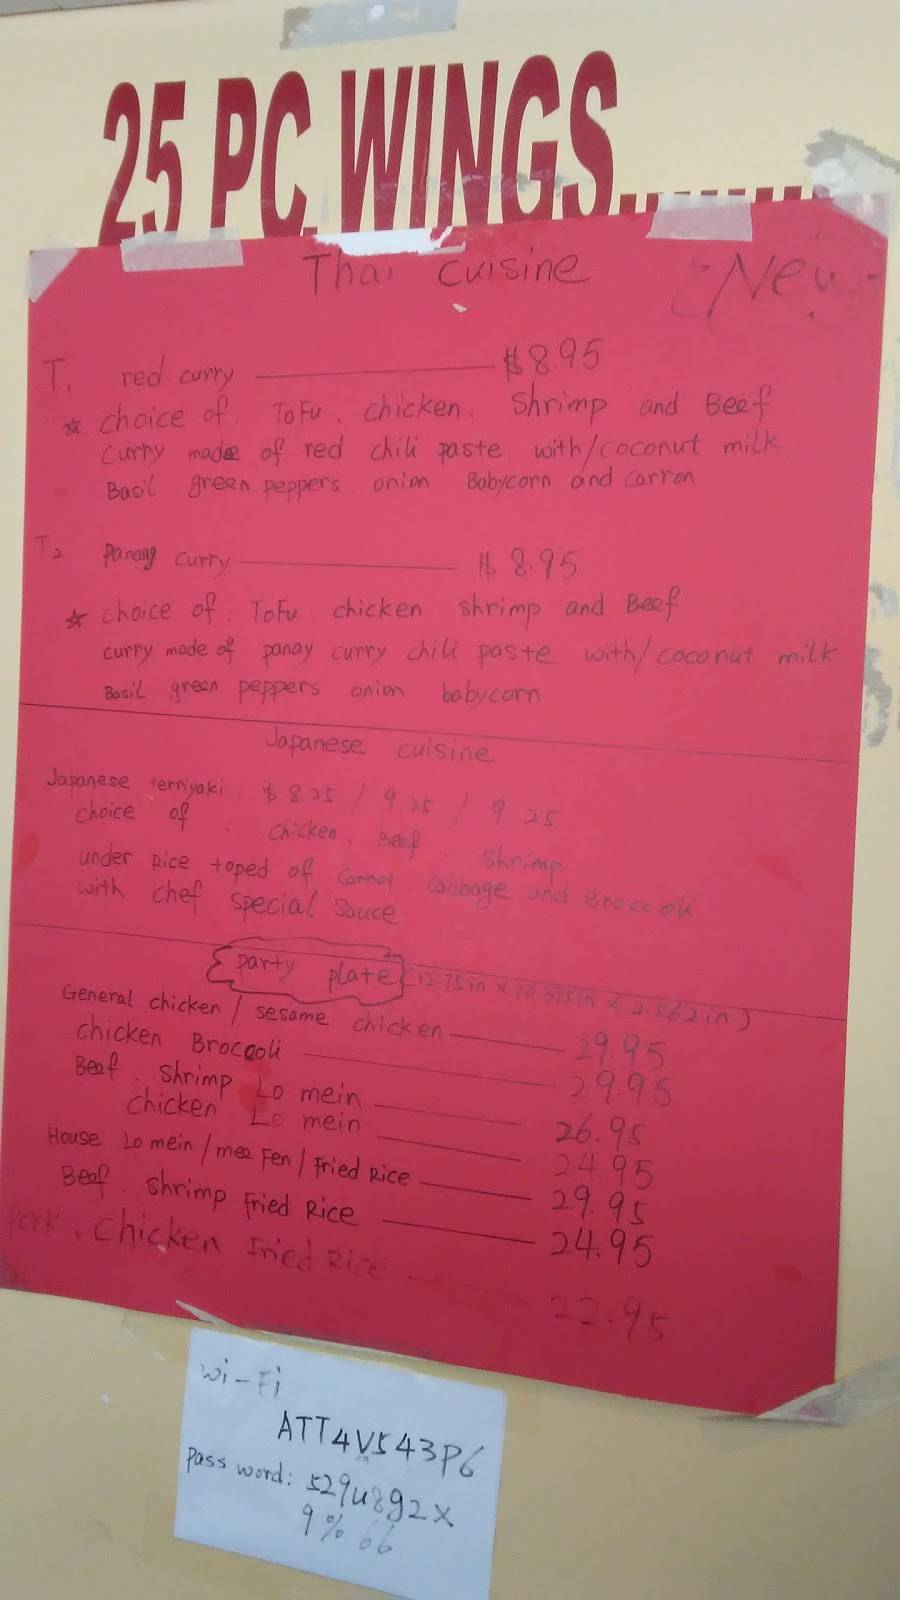 25 PC WINGS........
Thai cuisine New
T1 red curry $8.95
☆ choice of. ToFu. chicken. Shrimp and Beef
curry made of red chili paste with/coconut milk
Basil green peppers onion Babycorn and carron
T2 Panang curry $8.95
☆ choice of: ToFu chicken shrimp and Beef
curry made of panay curry chili paste with/coconut milk
Basil green peppers onion babycorn
Japanese cuisine
Japanese terriyaki. $8.25 / 9.25 / 9.25
choice of : chicken. Beef. Shrimp
under Rice toped of carrot cabbage and Broccoli
with chef special sauce
party plate (12.75in x 10.315in x 2.562in)
General chicken / sesame chicken 29.95
chicken Broccoli 29.95
Beef. Shrimp Lo mein 26.95
chicken Lo mein 24.95
House Lo mein / mee Fen / Fried Rice 29.95
Beef. shrimp Fried Rice 24.95
Pork. Chicken Fried Rice 22.95
Wi-Fi
ATT4V543P6
password: 529u8g2x
9%66